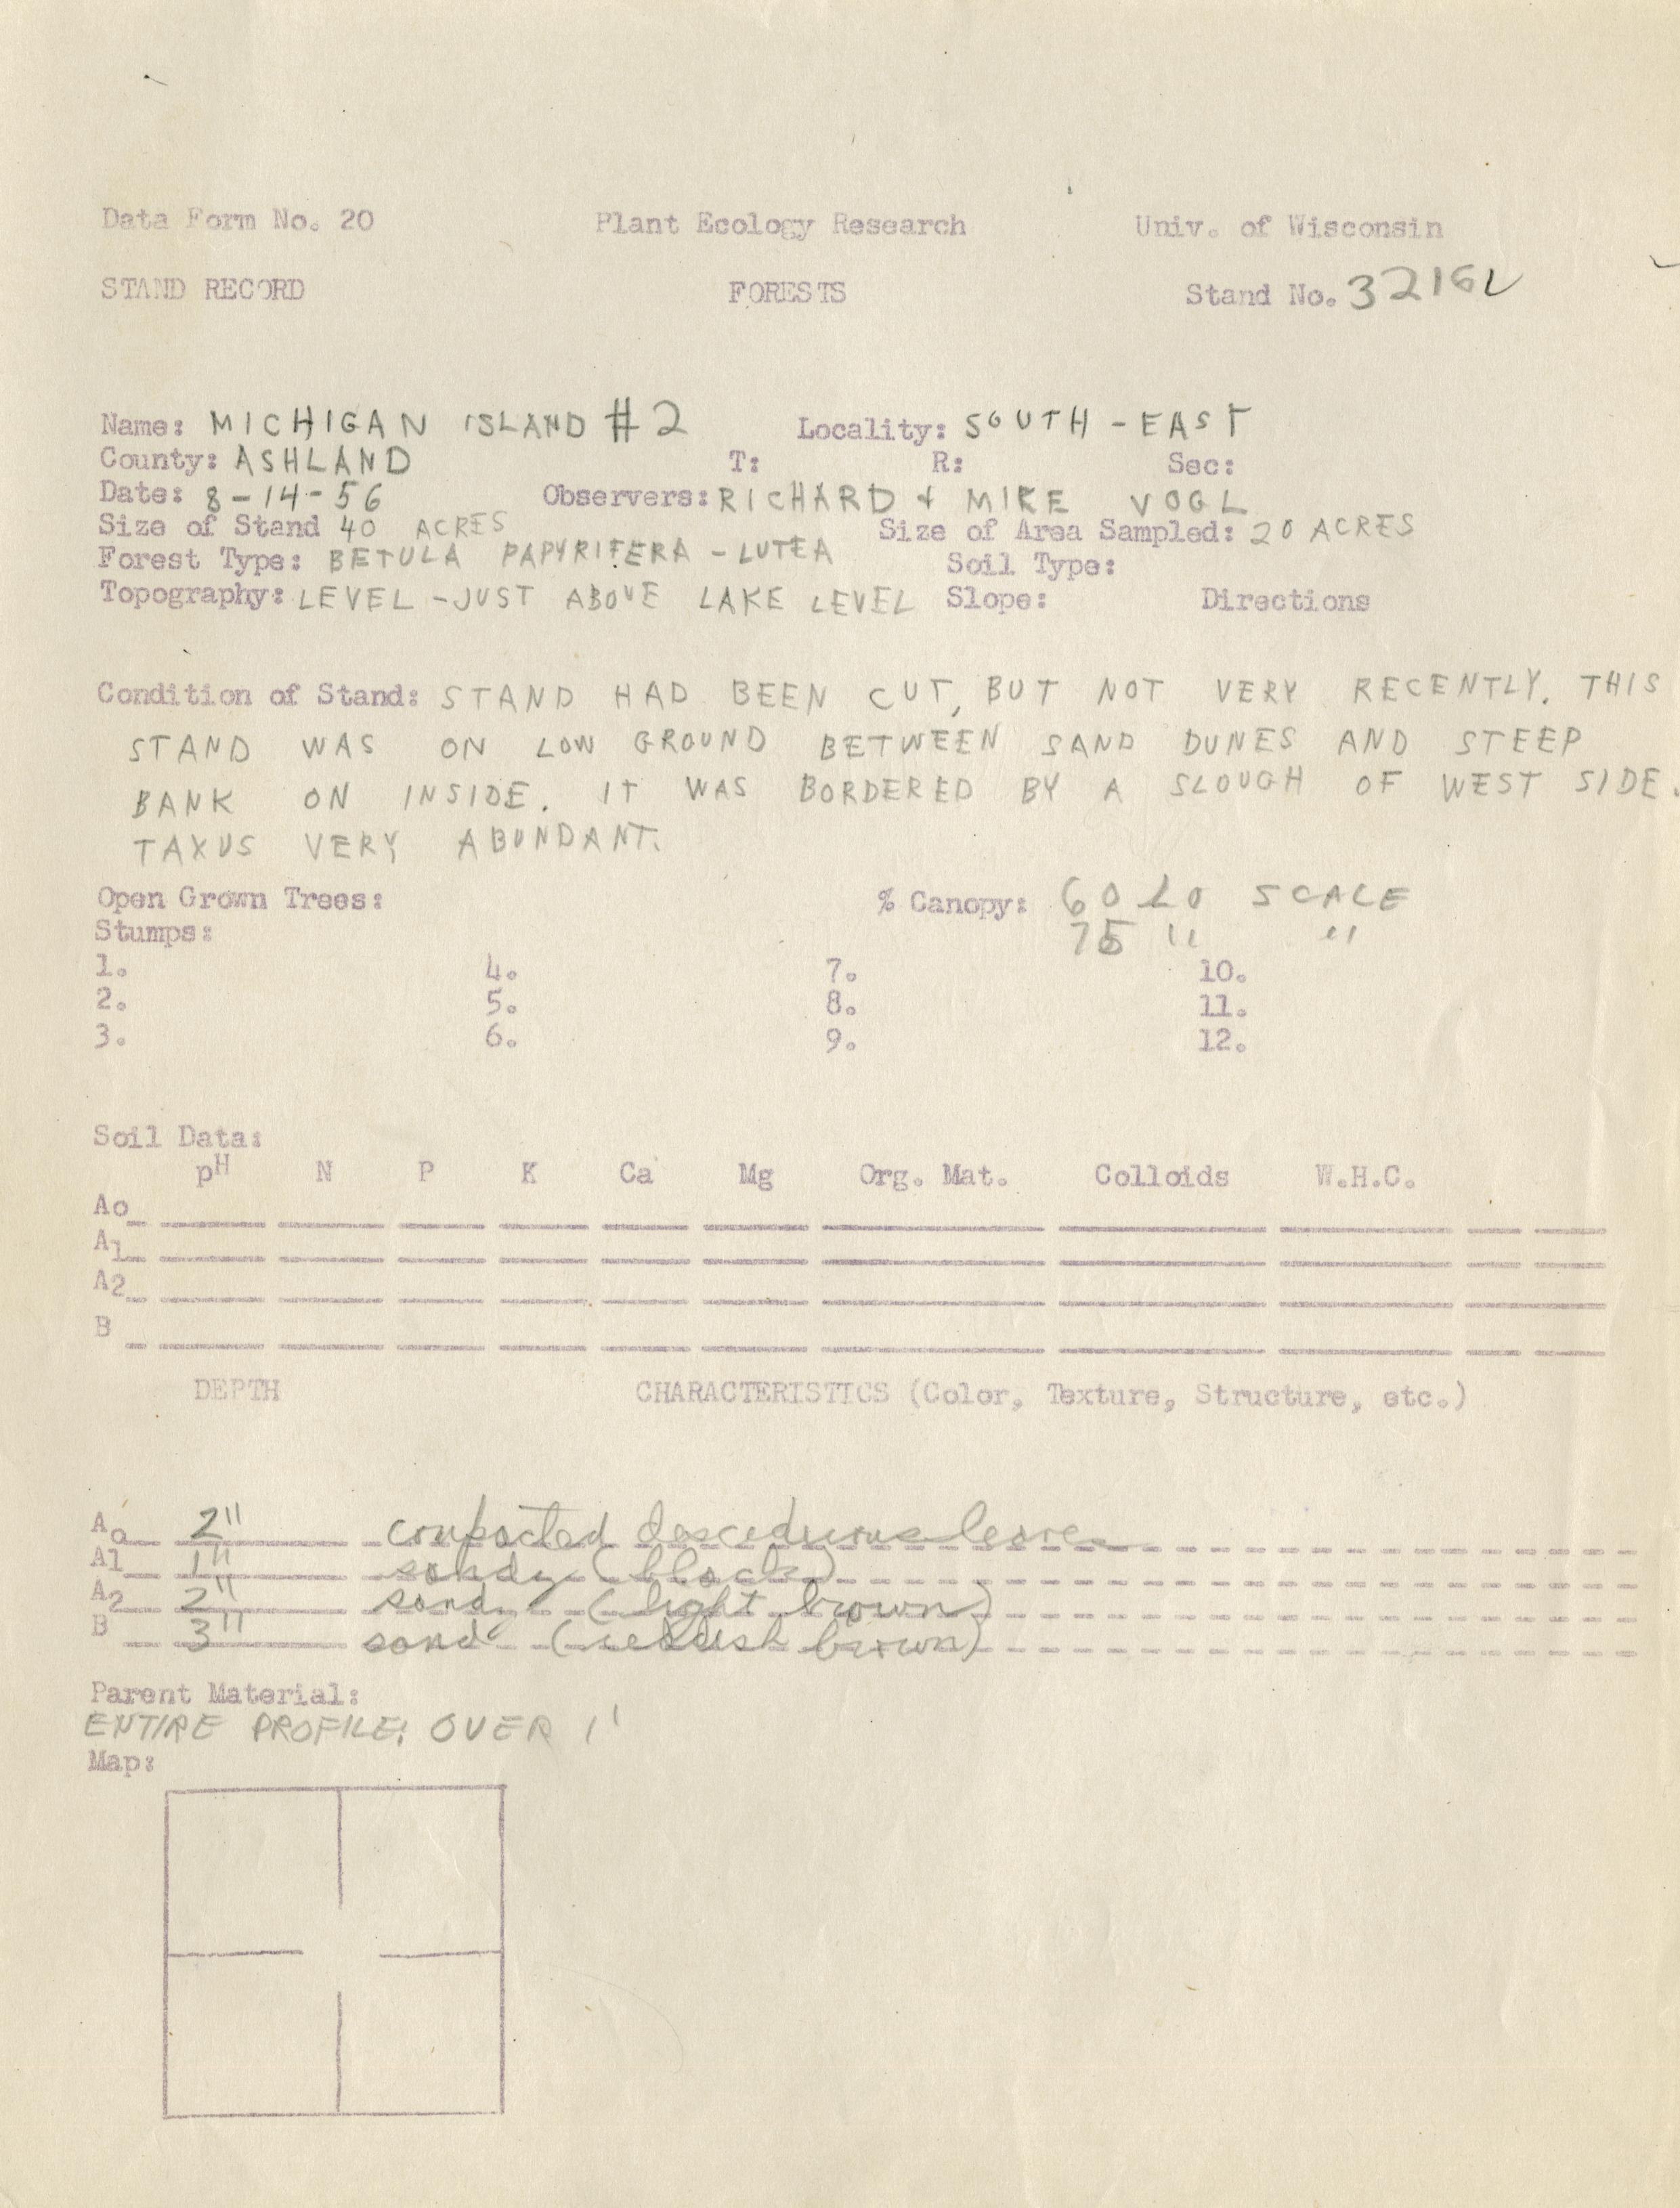 Data Form No. 20 Plant Ecology Research Univ. of Wisconsin
STAND RECORD FORESTS Stand No. 3216
Name: MICHIGAN ISLAND #2 Locality: SOUTH-EAST
County: ASHLAND T: R: Sec:
Date: 8-14-56 Observers: RICHARD & MIKE VOGL
Size of Stand 40 ACRES Size of Area Sampled: 20 ACRES
Forest Type: BETULA PAPYRIFERA - LUTEA Soil Type:
Topography: LEVEL - JUST ABOVE LAKE LEVEL Slope: Directions
Condition of Stand: STAND HAD BEEN CUT, BUT NOT VERY RECENTLY. THIS
STAND WAS ON LOW GROUND BETWEEN SAND DUNES AND STEEP
BANK ON INSIDE. IT WAS BORDERED BY A SLOUGH OF WEST SIDE.
TAXUS VERY ABUNDANT.
Open Grown Trees: % Canopy: 60 LO SCALE
Stumps: 75 " "
1. 4. 7. 10.
2. 5. 8. 11.
3. 6. 9. 12.
Soil Data:
pH N P K Ca Mg Org. Mat. Colloids W.H.C.
Ao
A1
A2
B
DEPTH CHARACTERISTICS (Color, Texture, Structure, etc.)
Ao 2" compacted leaves
A1 1" sandy (black)
A2 2" sandy (light brown)
B 3" sand (reddish brown)
Parent Material:
ENTIRE PROFILE: OVER 1'
Map: